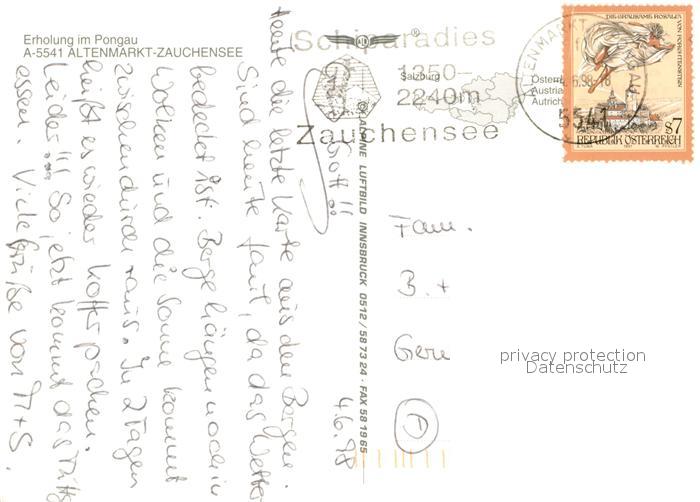 Erholung im Pongau
A-5541 ALTENMARKT-ZAUCHENSEE
Schiparadies
Salzburg
1350–
2240m
Zauchensee
Österr
Austria
Autrich
ALTENMARKT
5541
DIE GRAUSAME ROSALIA
VON FORCHTENSTEIN
S7
REPUBLIK ÖSTERREICH
© ALPINE LUFTBILD INNSBRUCK 0512/587324 · FAX 581965
4.6.98
Grüß Gott!!
Heute die letzte Karte aus den Bergen.
Sind heute faul, da das Wetter
bedeckt ist. Berge hängen noch in
Wolken und die Sonne kommt
zwischendurch raus. In 2 Tagen
heißt es wieder Koffer packen.
Leider!!! So jetzt kommt das
essen. Viele Grüße von M+S.
Fam.
B. +
Gere
D
privacy protection
Datenschutz